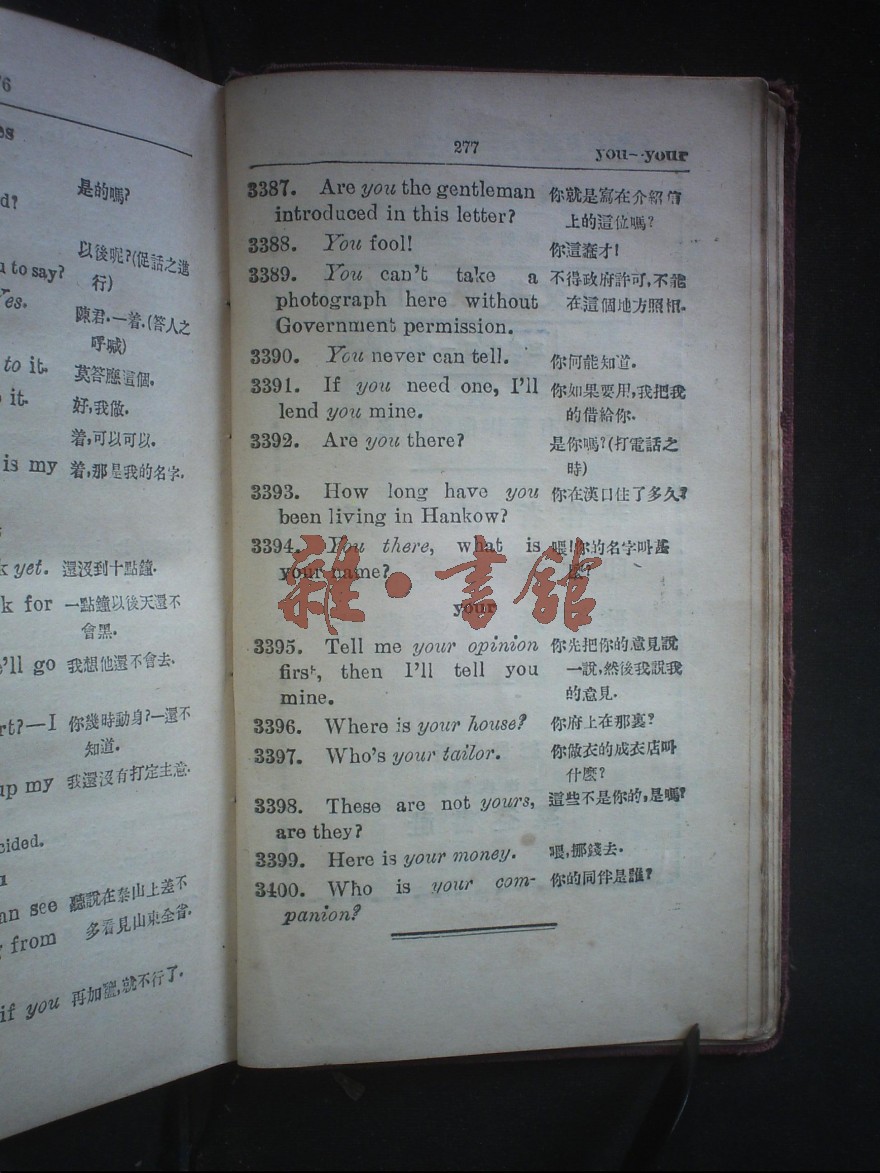 76
es
是的嗎?
d?
以後呢?(促話之進
u to say?
行)
Yes.
陳君.一着.(答人之
呼喊)
to it.
莫答應這個.
o it.
好,我做.
着,可以可以.
is my
着,那是我的名字.
k yet.
還沒到十點鐘.
k for
一點鐘以後天還不
會黑.
e'll go
我想他還不會去.
rt?—I
你幾時動身?一還不
知道.
up my
我還沒有打定主意.
cided.
an see
聽說在泰山上差不
g from
多看見山東全省.
if you
再加鹽,就不行了.
277
you--your
3387. Are you the gentleman
你就是寫在介紹信
introduced in this letter?
上的這位嗎?
3388. You fool!
你這蠢才!
3389. You can't take a
不得政府許可,不能
photograph here without
在這個地方照相.
Government permission.
3390. You never can tell.
你何能知道.
3391. If you need one, I'll
你如果要用,我把我
lend you mine.
的借給你.
3392. Are you there?
是你嗎?(打電話之
時)
3393. How long have you
你在漢口住了多久?
been living in Hankow?
3394. You there, what is
喂!你的名字叫甚
your name?
麼?
雜·書館
your
3395. Tell me your opinion
你先把你的意見說
first, then I'll tell you
一說,然後我說我
mine.
的意見.
3396. Where is your house?
你府上在那裏?
3397. Who's your tailor.
你做衣的成衣店叫
什麼?
3398. These are not yours,
這些不是你的,是嗎?
are they?
3399. Here is your money.
喂,挪錢去.
3400. Who is your com-
你的同伴是誰?
panion?